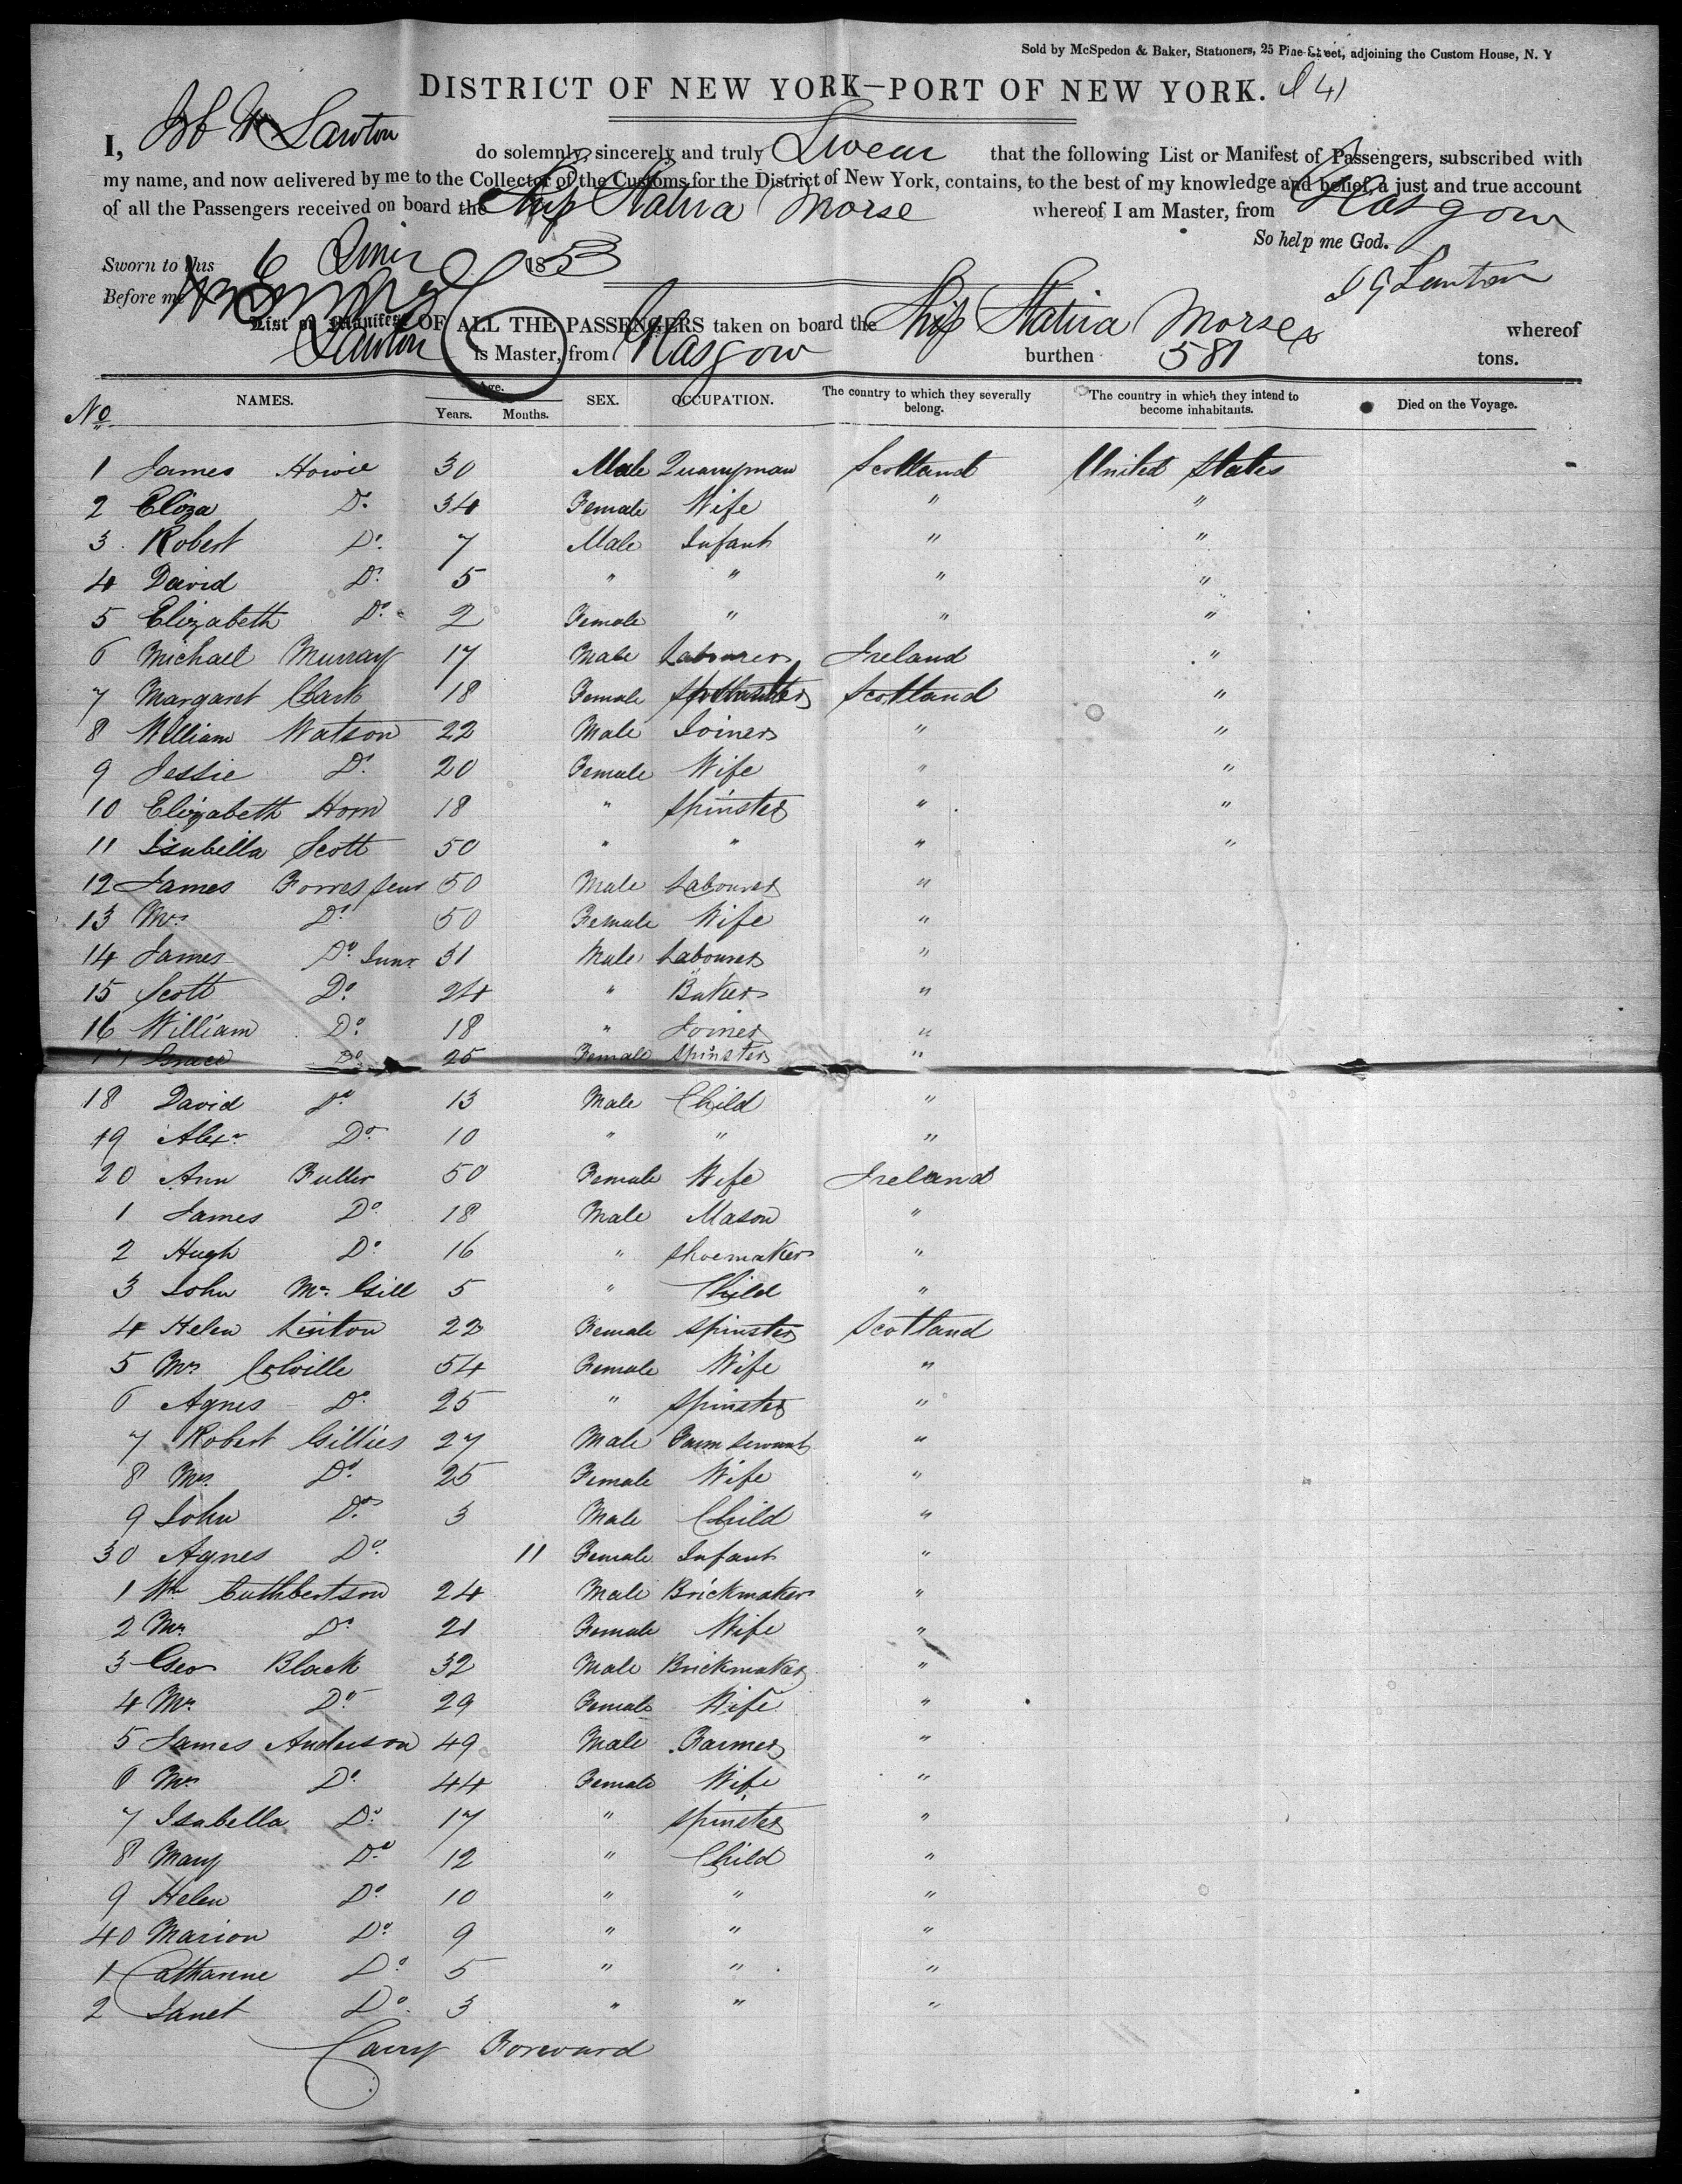 Sold by McSpedon & Baker, Stationers, 25 Pine Street, adjoining the Custom House, N. Y
DISTRICT OF NEW YORK—PORT OF NEW YORK. 41
I, Lawton do solemnly, sincerely and truly Swear that the following List or Manifest of Passengers, subscribed with
my name, and now delivered by me to the Collector of the Customs for the District of New York, contains, to the best of my knowledge and belief, a just and true account
of all the Passengers received on board the Ship Statira Morse whereof I am Master, from Glasgow
So help me God.
Sworn to this 6 June 1853
Before me
J G Lawton
List or Manifest OF ALL THE PASSENGERS taken on board the Ship Statira Morse whereof
Lawton is Master, from Glasgow burthen 581 tons.
No. NAMES. Age. Years. Months. SEX. OCCUPATION. The country to which they severally belong. The country in which they intend to become inhabitants. Died on the Voyage.
1 James Howie 30 Male Quarryman Scotland United States
2 Eliza Do. 34 Female Wife " "
3 Robert Do. 7 Male Infant " "
4 David Do. 5 " " " "
5 Elizabeth Do. 2 Female " " "
6 Michael Murray 17 Male Labourer Ireland "
7 Margaret Clark 18 Female Scotland "
8 William Watson 22 Male Joiner " "
9 Jessie Do. 20 Female Wife " "
10 Elizabeth Horn 18 " Spinster " "
11 Isabella Scott 50 " " " "
12 James Forres Senr 50 Male Labourer "
13 Mrs Do. 50 Female Wife "
14 James Do. Junr 31 Male Labourer "
15 Scott Do. 24 " Baker "
16 William Do. 18 " Joiner "
17 Grace Do. 25 Female Spinster "
18 David Do 13 Male Child "
19 Alexr Do. 10 " " "
20 Ann Fuller 50 Female Wife Ireland
1 James Do. 18 Male Mason "
2 Hugh Do. 16 " Shoemaker "
3 John McGill 5 " Child "
4 Helen Linton 22 Female Spinster Scotland
5 Mrs Colville 54 Female Wife "
6 Agnes Do. 25 " Spinster "
7 Robert Gillies 27 Male Farm Servant "
8 Mrs. Do. 25 Female Wife "
9 John Do. 3 Male Child "
30 Agnes Do. 11 Female Infant "
1 Wm Cuthbertson 24 Male Brickmaker "
2 Mrs Do. 21 Female Wife "
3 Geo Black 32 Male Brickmaker "
4 Mrs. Do. 29 Female Wife "
5 James Anderson 49 Male Farmer "
6 Mrs Do. 44 Female Wife "
7 Isabella Do. 17 " Spinster "
8 Mary Do. 12 " Child "
9 Helen Do. 10 " " "
40 Marion Do. 9 " " "
1 Catharine Do. 5 " " "
2 Janet Do. 3 " " "
Carry Forward